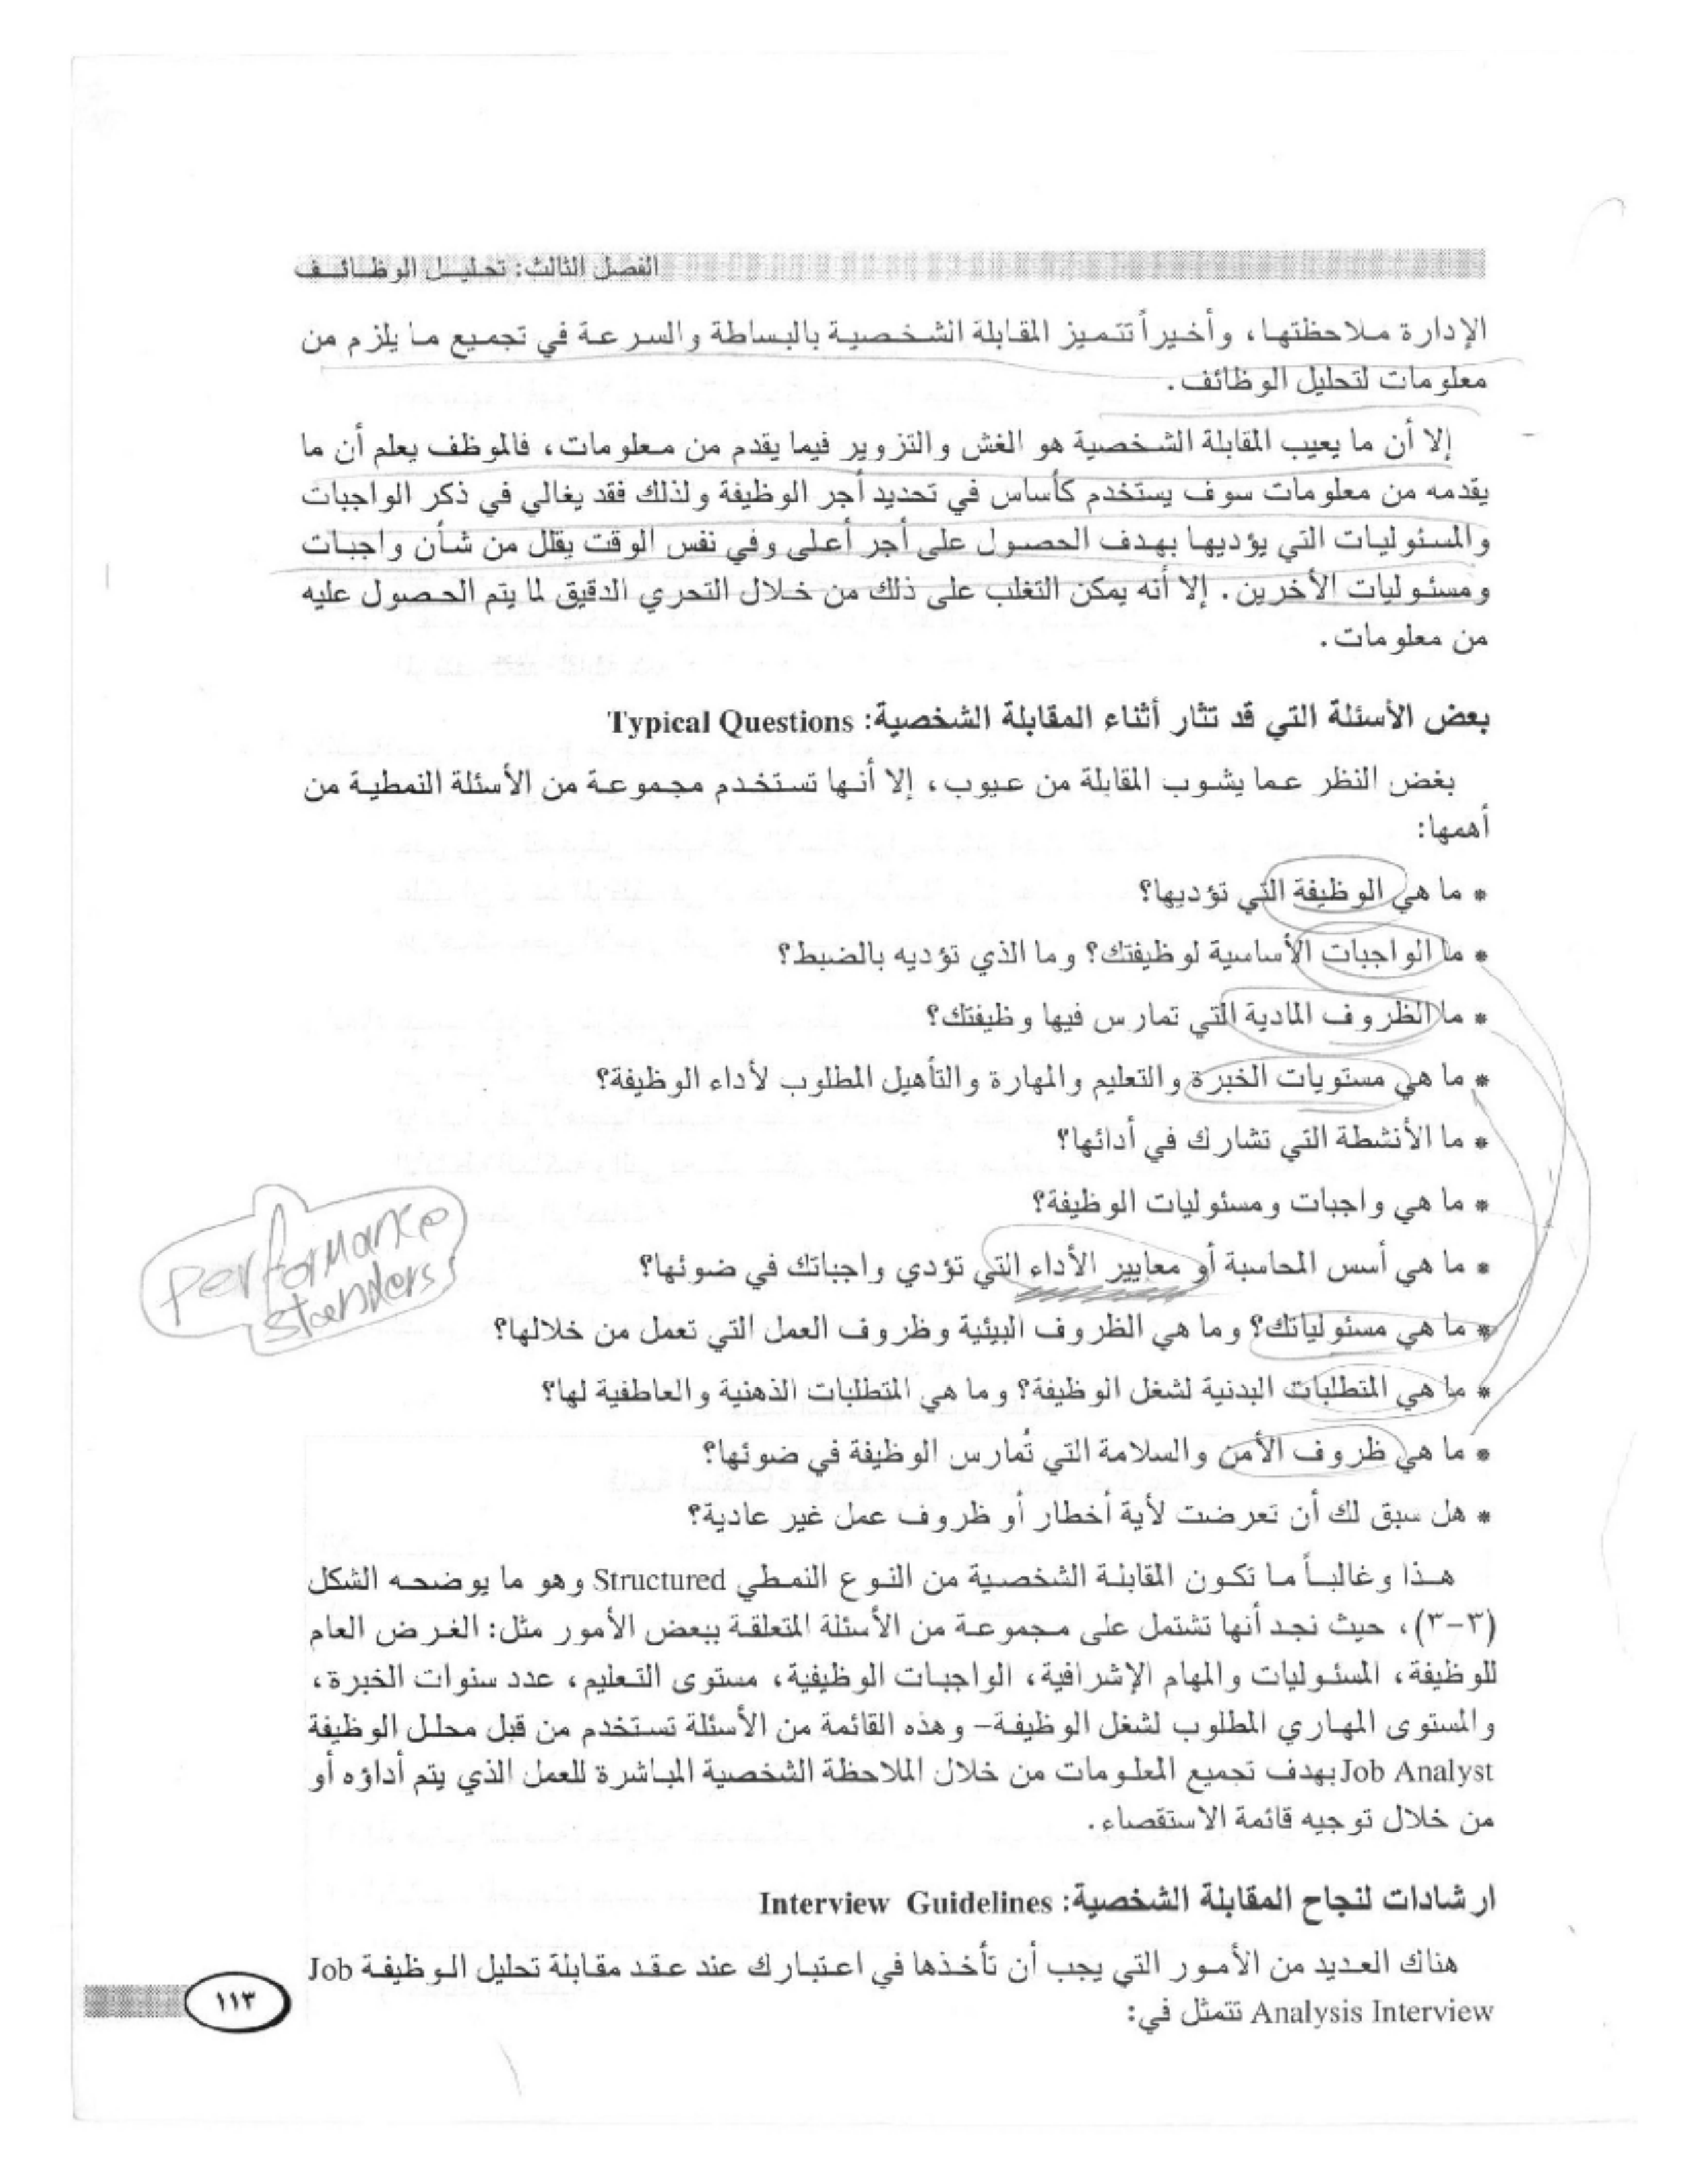 الفصل الثالث: تحليل الوظائف
الإدارة ملاحظتها، وأخيراً تتميز المقابلة الشخصية بالبساطة والسرعة في تجميع ما يلزم من
معلومات لتحليل الوظائف.
إلا أن ما يعيب المقابلة الشخصية هو الغش والتزوير فيما يقدم من معلومات، فالموظف يعلم أن ما
يقدمه من معلومات سوف يستخدم كأساس في تحديد أجر الوظيفة ولذلك فقد يغالي في ذكر الواجبات
والمسئوليات التي يؤديها بهدف الحصول على أجر أعلى وفي نفس الوقت يقلل من شأن واجبات
ومسئوليات الأخرين. إلا أنه يمكن التغلب على ذلك من خلال التحري الدقيق لما يتم الحصول عليه
من معلومات.
بعض الأسئلة التي قد تثار أثناء المقابلة الشخصية: Typical Questions
بغض النظر عما يشوب المقابلة من عيوب، إلا أنها تستخدم مجموعة من الأسئلة النمطية من
أهمها:
* ما هي الوظيفة التي تؤديها؟
* ما الواجبات الأساسية لوظيفتك؟ وما الذي تؤديه بالضبط؟
* ما الظروف المادية التي تمارس فيها وظيفتك؟
* ما هي مستويات الخبرة والتعليم والمهارة والتأهيل المطلوب لأداء الوظيفة؟
* ما الأنشطة التي تشارك في أدائها؟
* ما هي واجبات ومسئوليات الوظيفة؟
* ما هي أسس المحاسبة أو معايير الأداء التي تؤدي واجباتك في ضوئها؟
performance
standers
* ما هي مسئولياتك؟ وما هي الظروف البيئية وظروف العمل التي تعمل من خلالها؟
* ما هي المتطلبات البدنية لشغل الوظيفة؟ وما هي المتطلبات الذهنية والعاطفية لها؟
* ما هي ظروف الأمن والسلامة التي تُمارس الوظيفة في ضوئها؟
* هل سبق لك أن تعرضت لأية أخطار أو ظروف عمل غير عادية؟
هذا وغالباً ما تكون المقابلة الشخصية من النوع النمطي Structured وهو ما يوضحه الشكل
(٣-٣)، حيث نجد أنها تشتمل على مجموعة من الأسئلة المتعلقة ببعض الأمور مثل: الغرض العام
للوظيفة، المسئوليات والمهام الإشرافية، الواجبات الوظيفية، مستوى التعليم، عدد سنوات الخبرة،
والمستوى المهاري المطلوب لشغل الوظيفة- وهذه القائمة من الأسئلة تستخدم من قبل محلل الوظيفة
Job Analyst بهدف تجميع المعلومات من خلال الملاحظة الشخصية المباشرة للعمل الذي يتم أداؤه أو
من خلال توجيه قائمة الاستقصاء.
ارشادات لنجاح المقابلة الشخصية: Interview Guidelines
هناك العديد من الأمور التي يجب أن تأخذها في اعتبارك عند عقد مقابلة تحليل الوظيفة Job
Analysis Interview تتمثل في:
١١٣